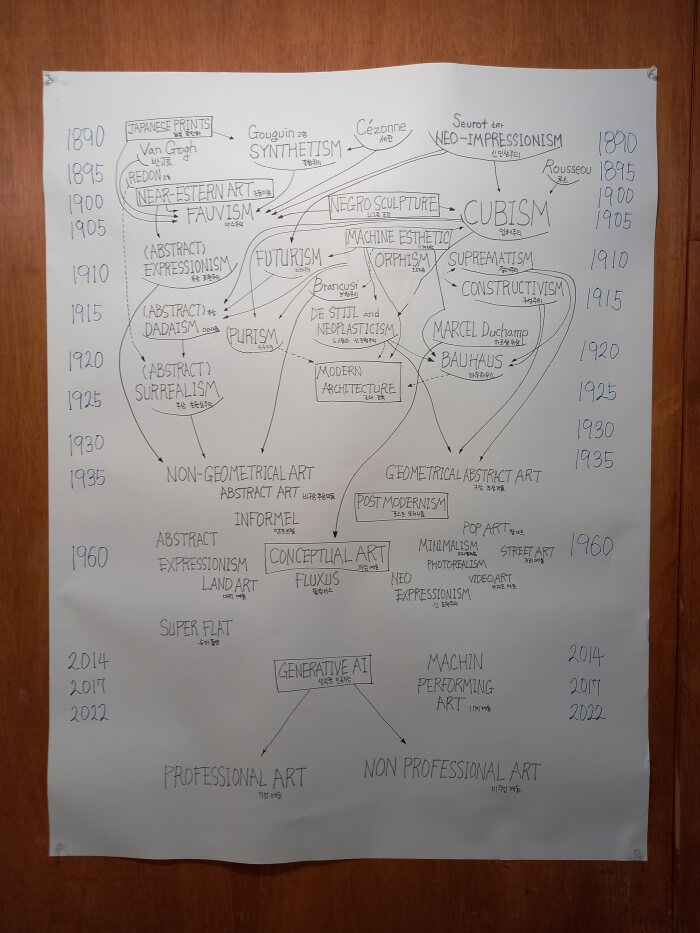 1890
JAPANESE PRINTS
Gouguin 고갱
Cézonne
세잔
Seurot 쇠라
NEO-IMPRESSIONISM
신인상주의
1890
Van Gogh
반고흐
SYNTHETISM
종합주의
1895
REDON
Rousseou
루소
1895
1900
NEAR-ESTERN ART
NEGRO SCULPTURE
니그로 조각
1900
1905
FAUVISM
야수주의
CUBISM
입체주의
1905
MACHINE ESTHETIC
(ABSTRACT)
EXPRESSIONISM
추상 표현주의
FUTURISM
미래주의
ORPHISM
SUPREMATISM
절대주의
1910
1910
Brancusi
브랑쿠시
CONSTRUCTIVISM
구성주의
1915
1915
(ABSTRACT) 추상
DADAISM 다다이즘
PURISM
순수주의
DE STIJL and
NEOPLASTICISM
MARCEL Duchamp
마르셀 뒤샹
1920
BAUHAUS
바우하우스
1920
(ABSTRACT)
SURREALISM
추상 초현실주의
MODERN
ARCHITECTURE
근대 건축
1925
1925
1930
1930
1935
NON-GEOMETRICAL ART
ABSTRACT ART 비구상 추상미술
GEOMETRICAL ABSTRACT ART
구상 추상미술
1935
POST MODERNISM
포스트 모더니즘
INFORMEL
앵포르멜
POP ART 팝 아트
1960
ABSTRACT
EXPRESSIONISM
CONCEPTUAL ART
개념 예술
MINIMALISM
미니멀리즘
STREET ART
거리 예술
1960
PHOTOREALISM
LAND ART
대지 예술
FLUXUS
플럭서스
NEO
EXPRESSIONISM
신 표현주의
VIDEO ART
비디오 아트
SUPER FLAT
슈퍼 플랫
2014
GENERATIVE AI
생성형 인공지능
MACHIN
2014
2017
PERFORMING
2017
2022
ART
2022
PROFESSIONAL ART
직업 예술
NON PROFESSIONAL ART
비직업 예술